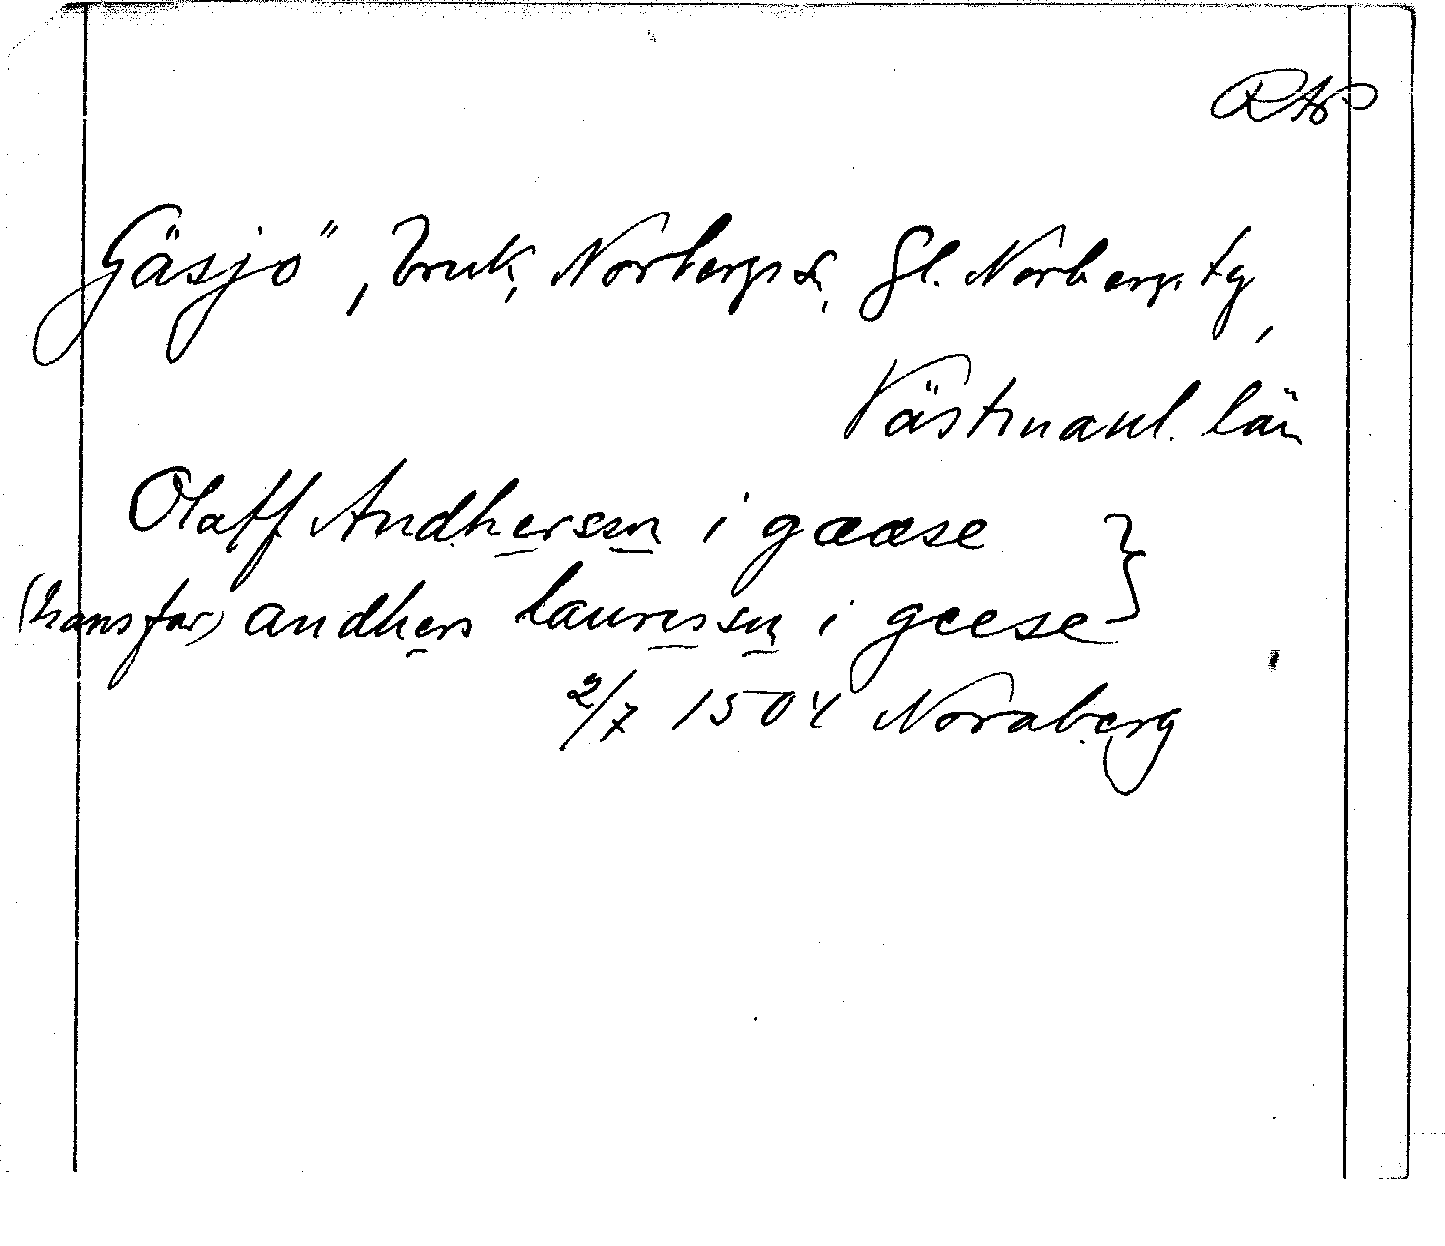 RAP
Gäsjö", bruk, Norbergs sn, Gl. Norbergs tg,
Västmanl. län
Olaff Andherson i gææse
(hans far) andhers laurensson i geese }
2/7 1504 Noraberg